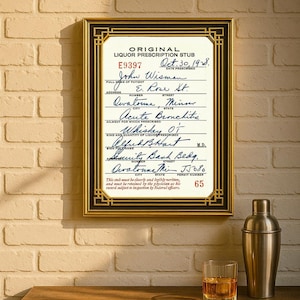 ORIGINAL
LIQUOR PRESCRIPTION STUB
E9397 Oct 30
DATE PRESCRIBED
John Wisman
FULL NAME OF PATIENT
E. Rose St
NUMBER STREET
Owatonna Minn
CITY STATE
Acute Bronchitis
AILMENT FOR WHICH PRESCRIBED
Whiskey
Alfred B Hart M.D.
Security Bank Bldg.
NUMBER STREET
Owatonna Minn
CITY STATE PERMIT NUMBER
This stub must be clearly and legibly written,
and must be retained by the physician as his
record subject to inspection by Federal officers.
65